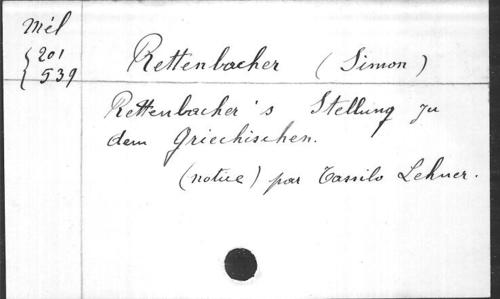 Mél
201
539
Rettenbacher (Simon)
Rettenbacher's Stellung zu
dem Griechischen.
(notice) par Tassilo Lehner.